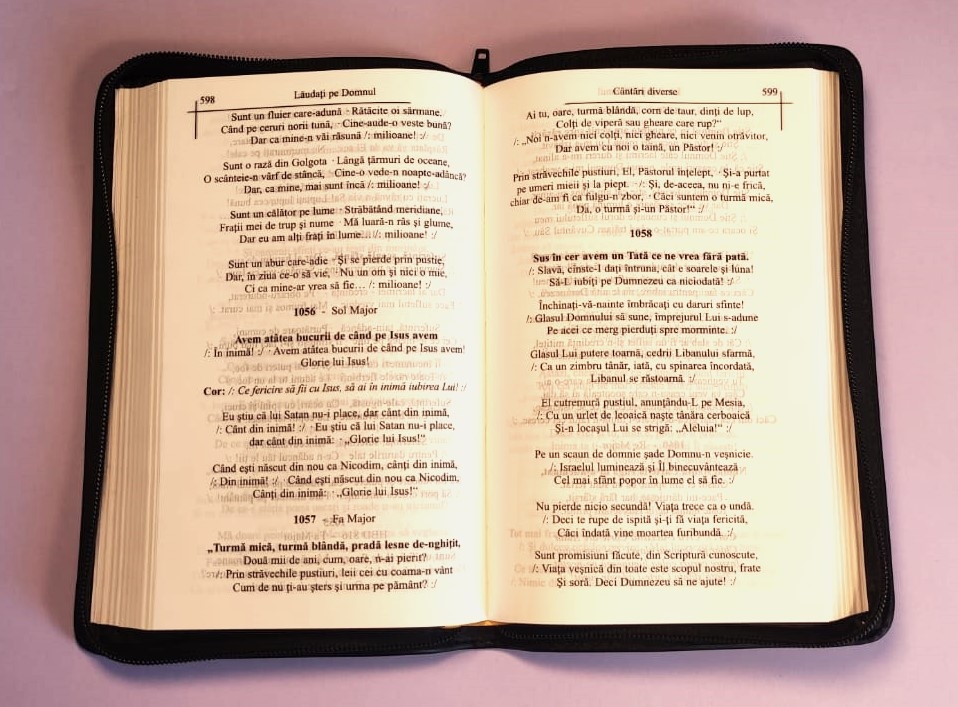 598
Lăudați pe Domnul
Sunt un fluier care-adună · Rătăcite oi sărmane.
Când pe ceruri norii tună, · Cine-aude-o veste bună?
Dar ca mine-n văi răsună /: milioane! :/
Sunt o rază din Golgota · Lângă țărmuri de oceane,
O scânteie-n vârf de stâncă, · Cine-o vede-n noapte-adâncă?
Dar, ca mine, mai sunt încă /: milioane! :/
Sunt un călător pe lume · Străbătând meridiane,
Frații mei de trup și nume · Mă luară-n râs și glume,
Dar eu am alți frați în lume... /: milioane! :/
Sunt un abur care-adie · Și se pierde prin pustie,
Dar, în ziua ce-o să vie, · Nu un om și nici o mie,
Ci ca mine-ar vrea să fie... /: milioane! :/
1056 - Sol Major
Avem atâtea bucurii de când pe Isus avem
/: În inimă! :/ · Avem atâtea bucurii de când pe Isus avem!
Glorie lui Isus!
Cor: /: Ce fericire să fii cu Isus, să ai în inimă iubirea Lui! :/
Eu știu că lui Satan nu-i place, dar cânt din inimă,
/: Cânt din inimă! :/ · Eu știu că lui Satan nu-i place,
dar cânt din inimă: · „Glorie lui Isus!”
Când ești născut din nou ca Nicodim, cânți din inimă,
/: Din inimă! :/ · Când ești născut din nou ca Nicodim,
Cânți din inimă: · „Glorie lui Isus!”
1057 - Fa Major
„Turmă mică, turmă blândă, pradă lesne de-nghițit,
Două mii de ani, cum, oare, n-ai pierit?
/: Prin străvechile pustiuri, leii cei cu coama-n vânt
Cum de nu ți-au șters și urma pe pământ? :/
Cântări diverse
599
Ai tu, oare, turmă blândă, corn de taur, dinți de lup,
Colți de viperă sau gheare care rup?”
/: „Noi n-avem nici colți, nici gheare, nici venin otrăvitor,
Dar avem cu noi o taină, un Păstor! :/
Prin străvechile pustiuri, El, Păstorul înțelept, · Și-a purtat
pe umeri mieii și la piept. · /: Și, de-aceea, nu ni-e frică,
chiar de-am fi ca fulgu-n zbor, · Căci suntem o turmă mică,
Da, o turmă și-un Păstor!” :/
1058
Sus în cer avem un Tată ce ne vrea fără pată.
/: Slavă, cinste-I dați întruna, cât e soarele și luna!
Să-L iubiți pe Dumnezeu ca niciodată! :/
Închinați-vă-nainte îmbrăcați cu daruri sfinte!
/: Glasul Domnului să sune, împrejurul Lui s-adune
Pe acei ce merg pierduți spre morminte. :/
Glasul Lui putere toarnă, cedrii Libanului sfarmă,
/: Ca un zimbru tânăr, iată, cu spinarea încordată,
Libanul se răstoarnă. :/
El cutremură pustiul, anunțându-L pe Mesia,
/: Cu un urlet de leoaică naște tânăra cerboaică
Și-n locașul Lui se strigă: „Aleluia!” :/
Pe un scaun de domnie șade Domnu-n veșnicie.
/: Israelul luminează și Îl binecuvântează
Cel mai sfânt popor în lume el să fie. :/
Nu pierde nicio secundă! Viața trece ca o undă.
/: Deci te rupe de ispită și-ți fă viața fericită,
Căci îndată vine moartea furibundă. :/
Sunt promisiuni făcute, din Scriptură cunoscute,
/: Viața veșnică din toate este scopul nostru, frate
Și soră. Deci Dumnezeu să ne ajute! :/